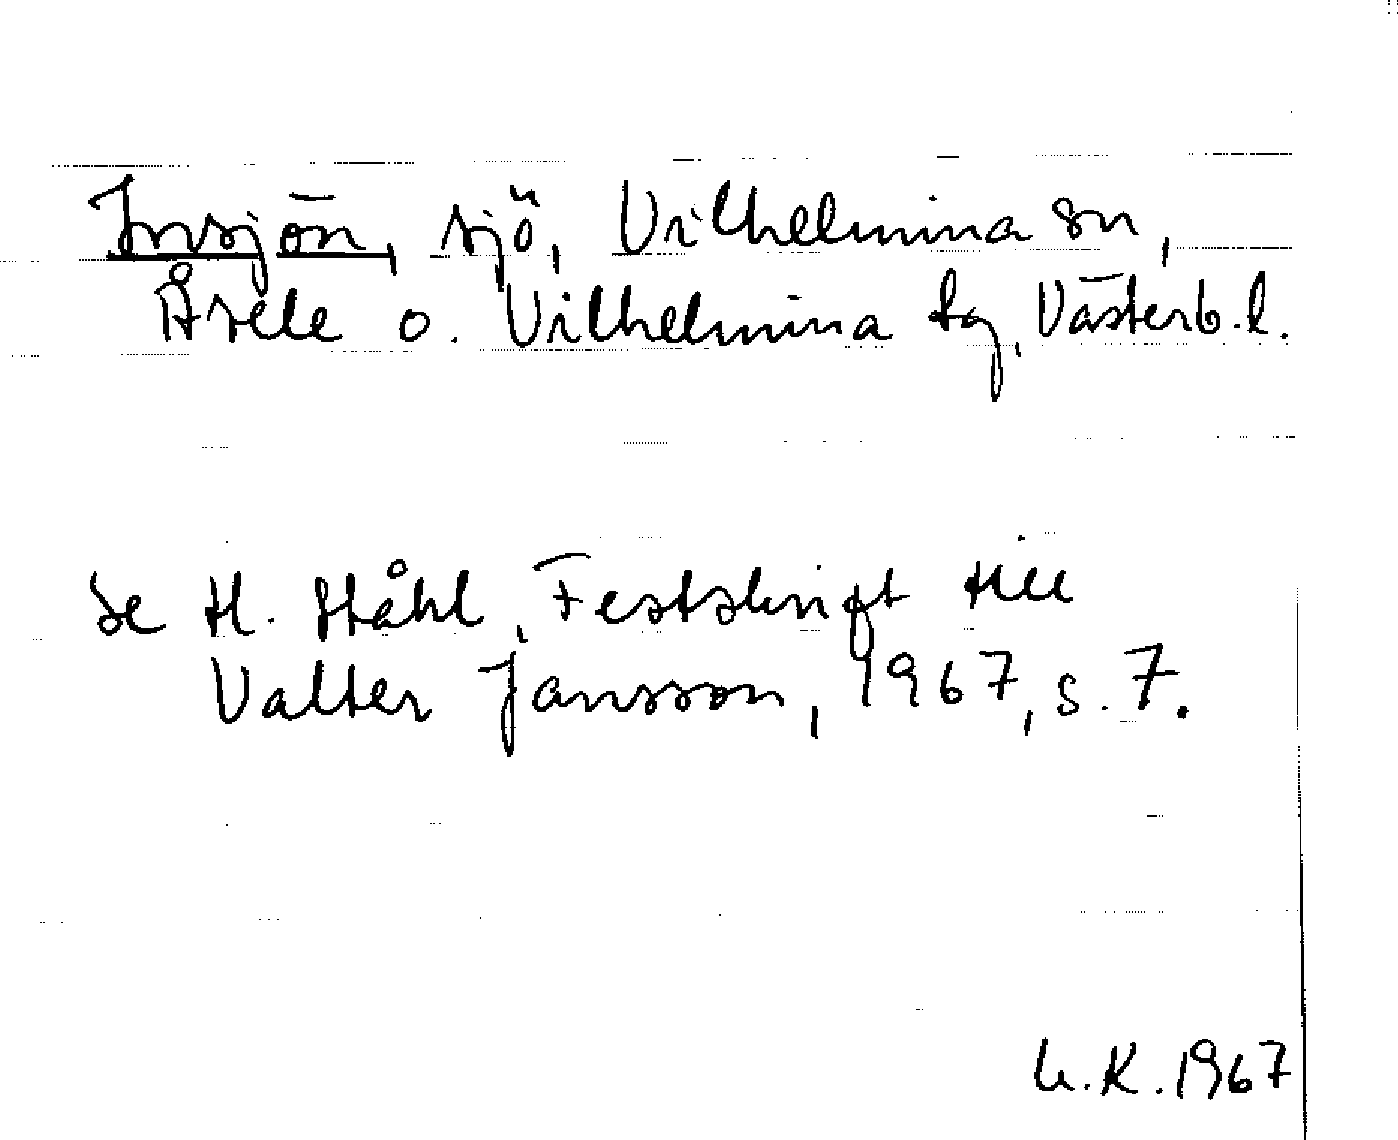 Insjön, sjö, Vilhelmina sn,
Åsele o. Vilhelmina tg, Västerb.l.
se H. Ståhl, Festskrift till
Valter Jansson, 1967, s. 7.
U.K. 1967